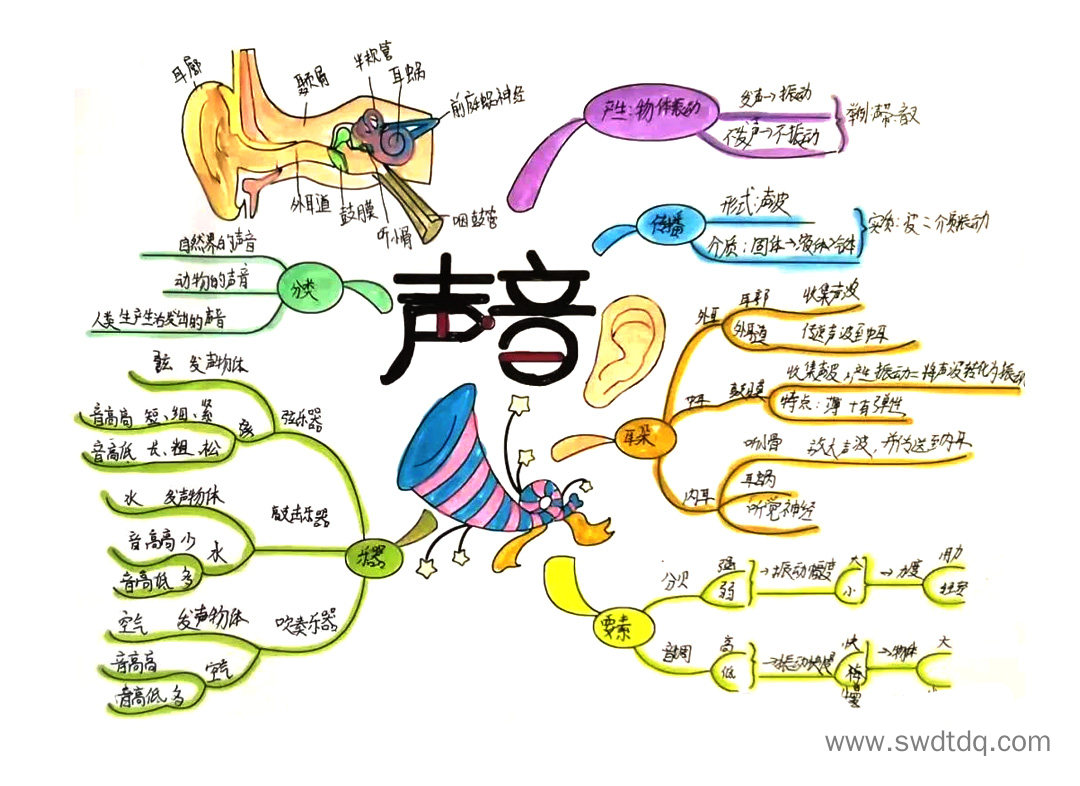 耳廓
颞骨
半规管
耳蜗
前庭蜗神经
外耳道
鼓膜
听小骨
咽鼓管
声音
产生：物体振动
发声→振动
不发声→不振动
传播
形式：声波
介质：固体→液体→气体
实质：波
介质振动
分类
自然界的声音
动物的声音
人类生产生活发出的声音
耳朵
外耳
耳郭
收集声波
外耳道
传递声波到中耳
中耳
鼓膜
收集声波，产生振动=将声波转化为振动
特点：薄+有弹性
内耳
听小骨
放大声波，并传送至内耳
耳蜗
听觉神经
乐器
弦乐器
弦 发声物体
弦
音高高 短、细、紧
音高低 长、粗、松
敲击乐器
水 发声物体
水
音高高 少
音高低 多
吹奏乐器
空气 发声物体
空气
音高高
音高低 多
要素
分贝
强
弱
→振动幅度
大
小
→力度
用力
轻轻
音调
高
低
→振动快慢
快
慢
→物体
大
www.swdtdq.com